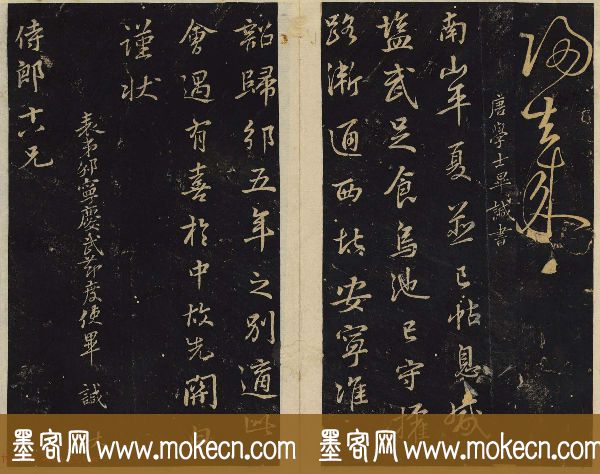 唐學士畢諴書
南山平夏並已帖息
鹽武足食烏池已守
路漸通西 安寧准
詔歸邠五年之別適
會遇有喜於中故先開
謹狀
表弟邠寧慶武節度使畢 諴
侍郎十六兄
墨客网www.mokecn.com 墨客网www.mokecn.com